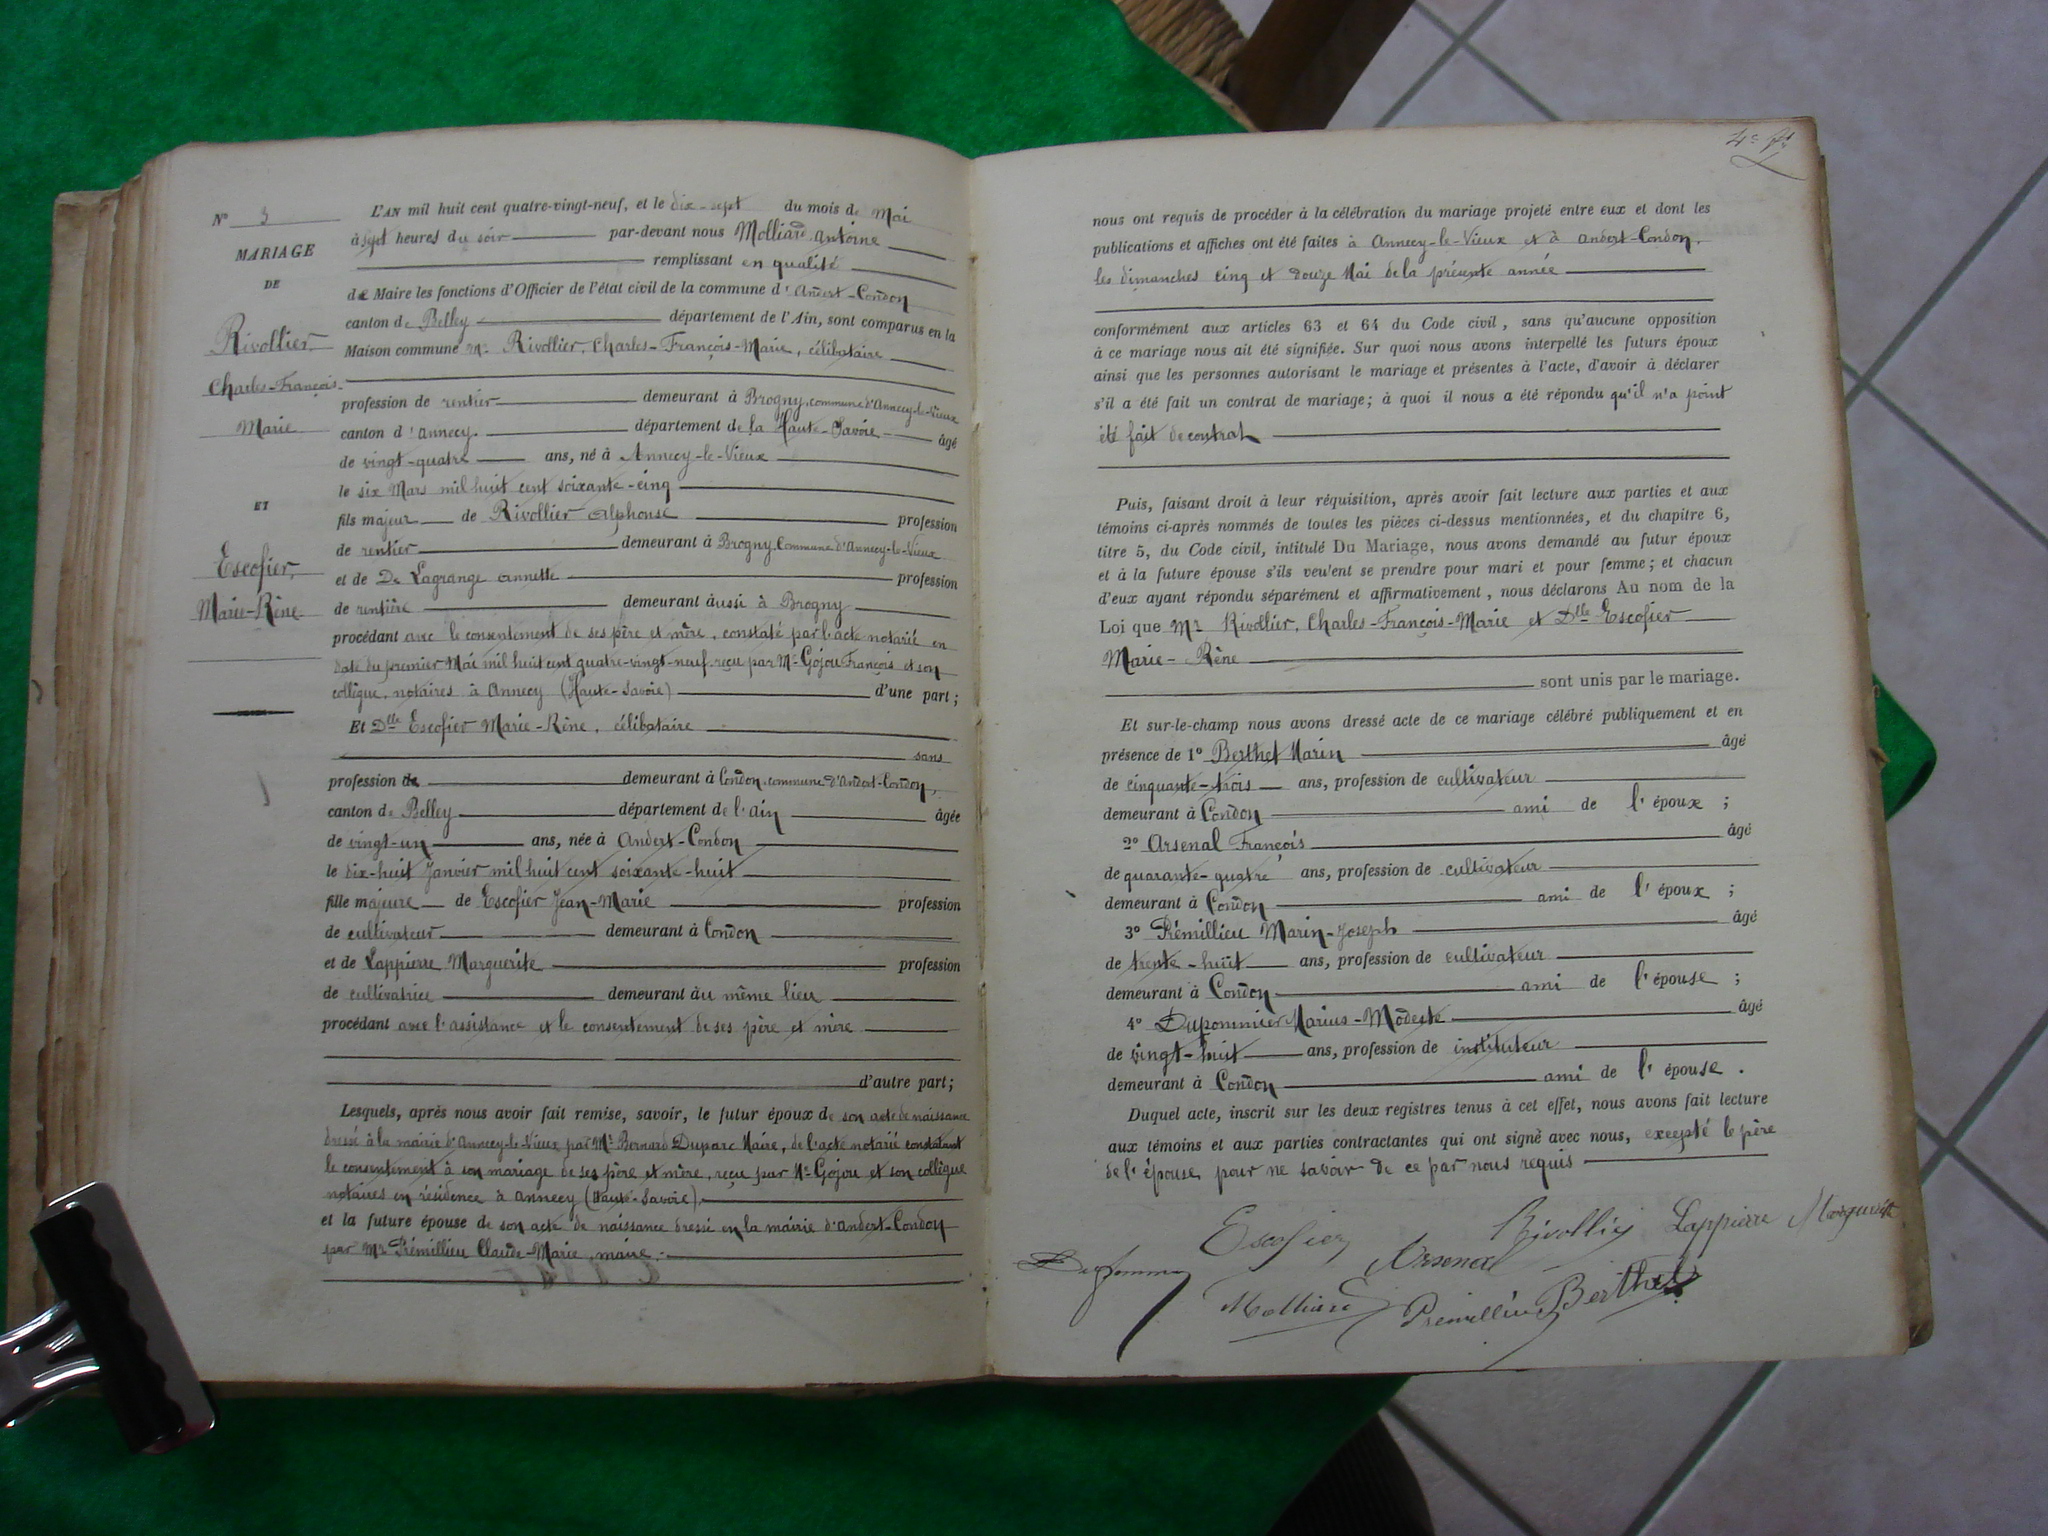 N° 3
MARIAGE
DE
Rivollier,
Charles-François-
Marie
ET
Escofier,
Marie-Rêne
L'AN mil huit cent quatre-vingt-neuf, et le dix-sept du mois de Mai
à sept heures du soir par-devant nous Molliard Antoine
remplissant en qualité
de Maire les fonctions d'Officier de l'état civil de la commune d'Andert-Condon
canton de Belley département de l'Ain, sont comparus en la
Maison commune Mr Rivollier, Charles-François-Marie, célibataire
profession de rentier demeurant à Brogny, commune d'Annecy-le-Vieux
canton d'Annecy. département de la Haute-Savoie âgé
de vingt-quatre ans, né à Annecy-le-Vieux
le six Mars mil huit cent soixante-cinq
fils majeur de Rivollier Alphonse profession
de rentier demeurant à Brogny, Commune d'Annecy-le-Vieux
et de De Lagrange Annette profession
de rentière demeurant àussi à Brogny
procédant avec le consentement de ses père et mère, constaté par l'acte notarié en
date du premier Mai mil huit cent quatre-vingt-neuf reçu par Me Gojou François et son
collègue, notaires à Annecy (Haute-Savoie) d'une part;
Et Dlle Escofier Marie-Rêne, célibataire
sans
profession de demeurant à Condon, commune d'Andert-Condon,
canton de Belley département de l'Ain âgée
de vingt-un ans, née à Andert-Condon
le dix-huit Janvier mil huit cent soixante-huit
fille majeure de Escofier Jean-Marie profession
de cultivateur demeurant à Condon
et de Lappierre Marguerite profession
de cultivatrice demeurant àu même lieu
procédant avec l'assistance et le consentement de ses père et mère
d'autre part;
Lesquels, après nous avoir fait remise, savoir, le futur époux de son acte de naissance
dressé à la mairie d'Annecy-le-Vieux par Mr Bernard Duparc Maire, de l'acte notarié constatant
le consentement à son mariage de ses père et mère, reçu par Me Gojou et son collègue
notaires en résidence à Annecy (Haute-Savoie),
et la future épouse de son acte de naissance dressé en la mairie d'Andert-Condon
par Mr Prémillieu Claude-Marie, maire:
nous ont requis de procéder à la célébration du mariage projeté entre eux et dont les
publications et affiches ont été faites à Annecy-le-Vieux et à Andert-Condon,
les dimanches cinq et douze Mai de la présente année
conformément aux articles 63 et 64 du Code civil, sans qu'aucune opposition
à ce mariage nous ait été signifiée. Sur quoi nous avons interpellé les futurs époux
ainsi que les personnes autorisant le mariage et présentes à l'acte, d'avoir à déclarer
s'il a été fait un contrat de mariage; à quoi il nous a été répondu qu'il n'a point
été fait de contrat
Puis, faisant droit à leur réquisition, après avoir fait lecture aux parties et aux
témoins ci-après nommés de toutes les pièces ci-dessus mentionnées, et du chapitre 6,
titre 5, du Code civil, intitulé Du Mariage, nous avons demandé au futur époux
et à la future épouse s'ils veulent se prendre pour mari et pour femme; et chacun
d'eux ayant répondu séparément et affirmativement, nous déclarons Au nom de la
Loi que Mr Rivollier, Charles-François-Marie et Dlle Escofier
Marie-Rêne
sont unis par le mariage.
Et sur-le-champ nous avons dressé acte de ce mariage célébré publiquement et en
présence de 1° Berthet Marin âgé
de cinquante-trois ans, profession de cultivateur
demeurant à Condon ami de l'époux;
2° Arsenal François âgé
de quarante-quatre ans, profession de cultivateur
demeurant à Condon ami de l'époux;
3° Prémillieu Marin-Joseph âgé
de trente-huit ans, profession de cultivateur
demeurant à Condon ami de l'épouse;
4° Dupommier Marius-Modeste âgé
de vingt-huit ans, profession de instituteur
demeurant à Condon ami de l'épouse.
Duquel acte, inscrit sur les deux registres tenus à cet effet, nous avons fait lecture
aux témoins et aux parties contractantes qui ont signé avec nous, excepté le père
de l'épouse, pour ne savoir de ce par nous requis
Escofier Rivollier Lappierre Marguerite
Dupommier Arsenal
Molliard Prémillieu Berthet